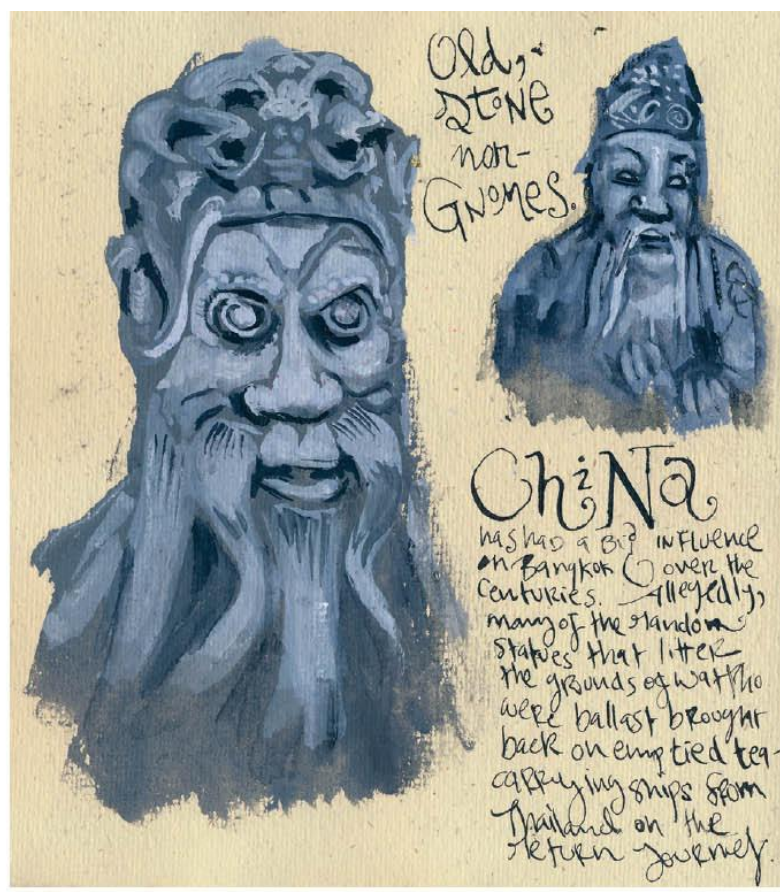 Old,
Stone
non-
Gnomes.
China
has had a Big influence
on Bangkok over the
centuries. Allegedly,
many of the random
statues that litter
the grounds of Wat Pho
were ballast brought
back on emptied tea-
carrying ships from
Thailand on the
return journey.